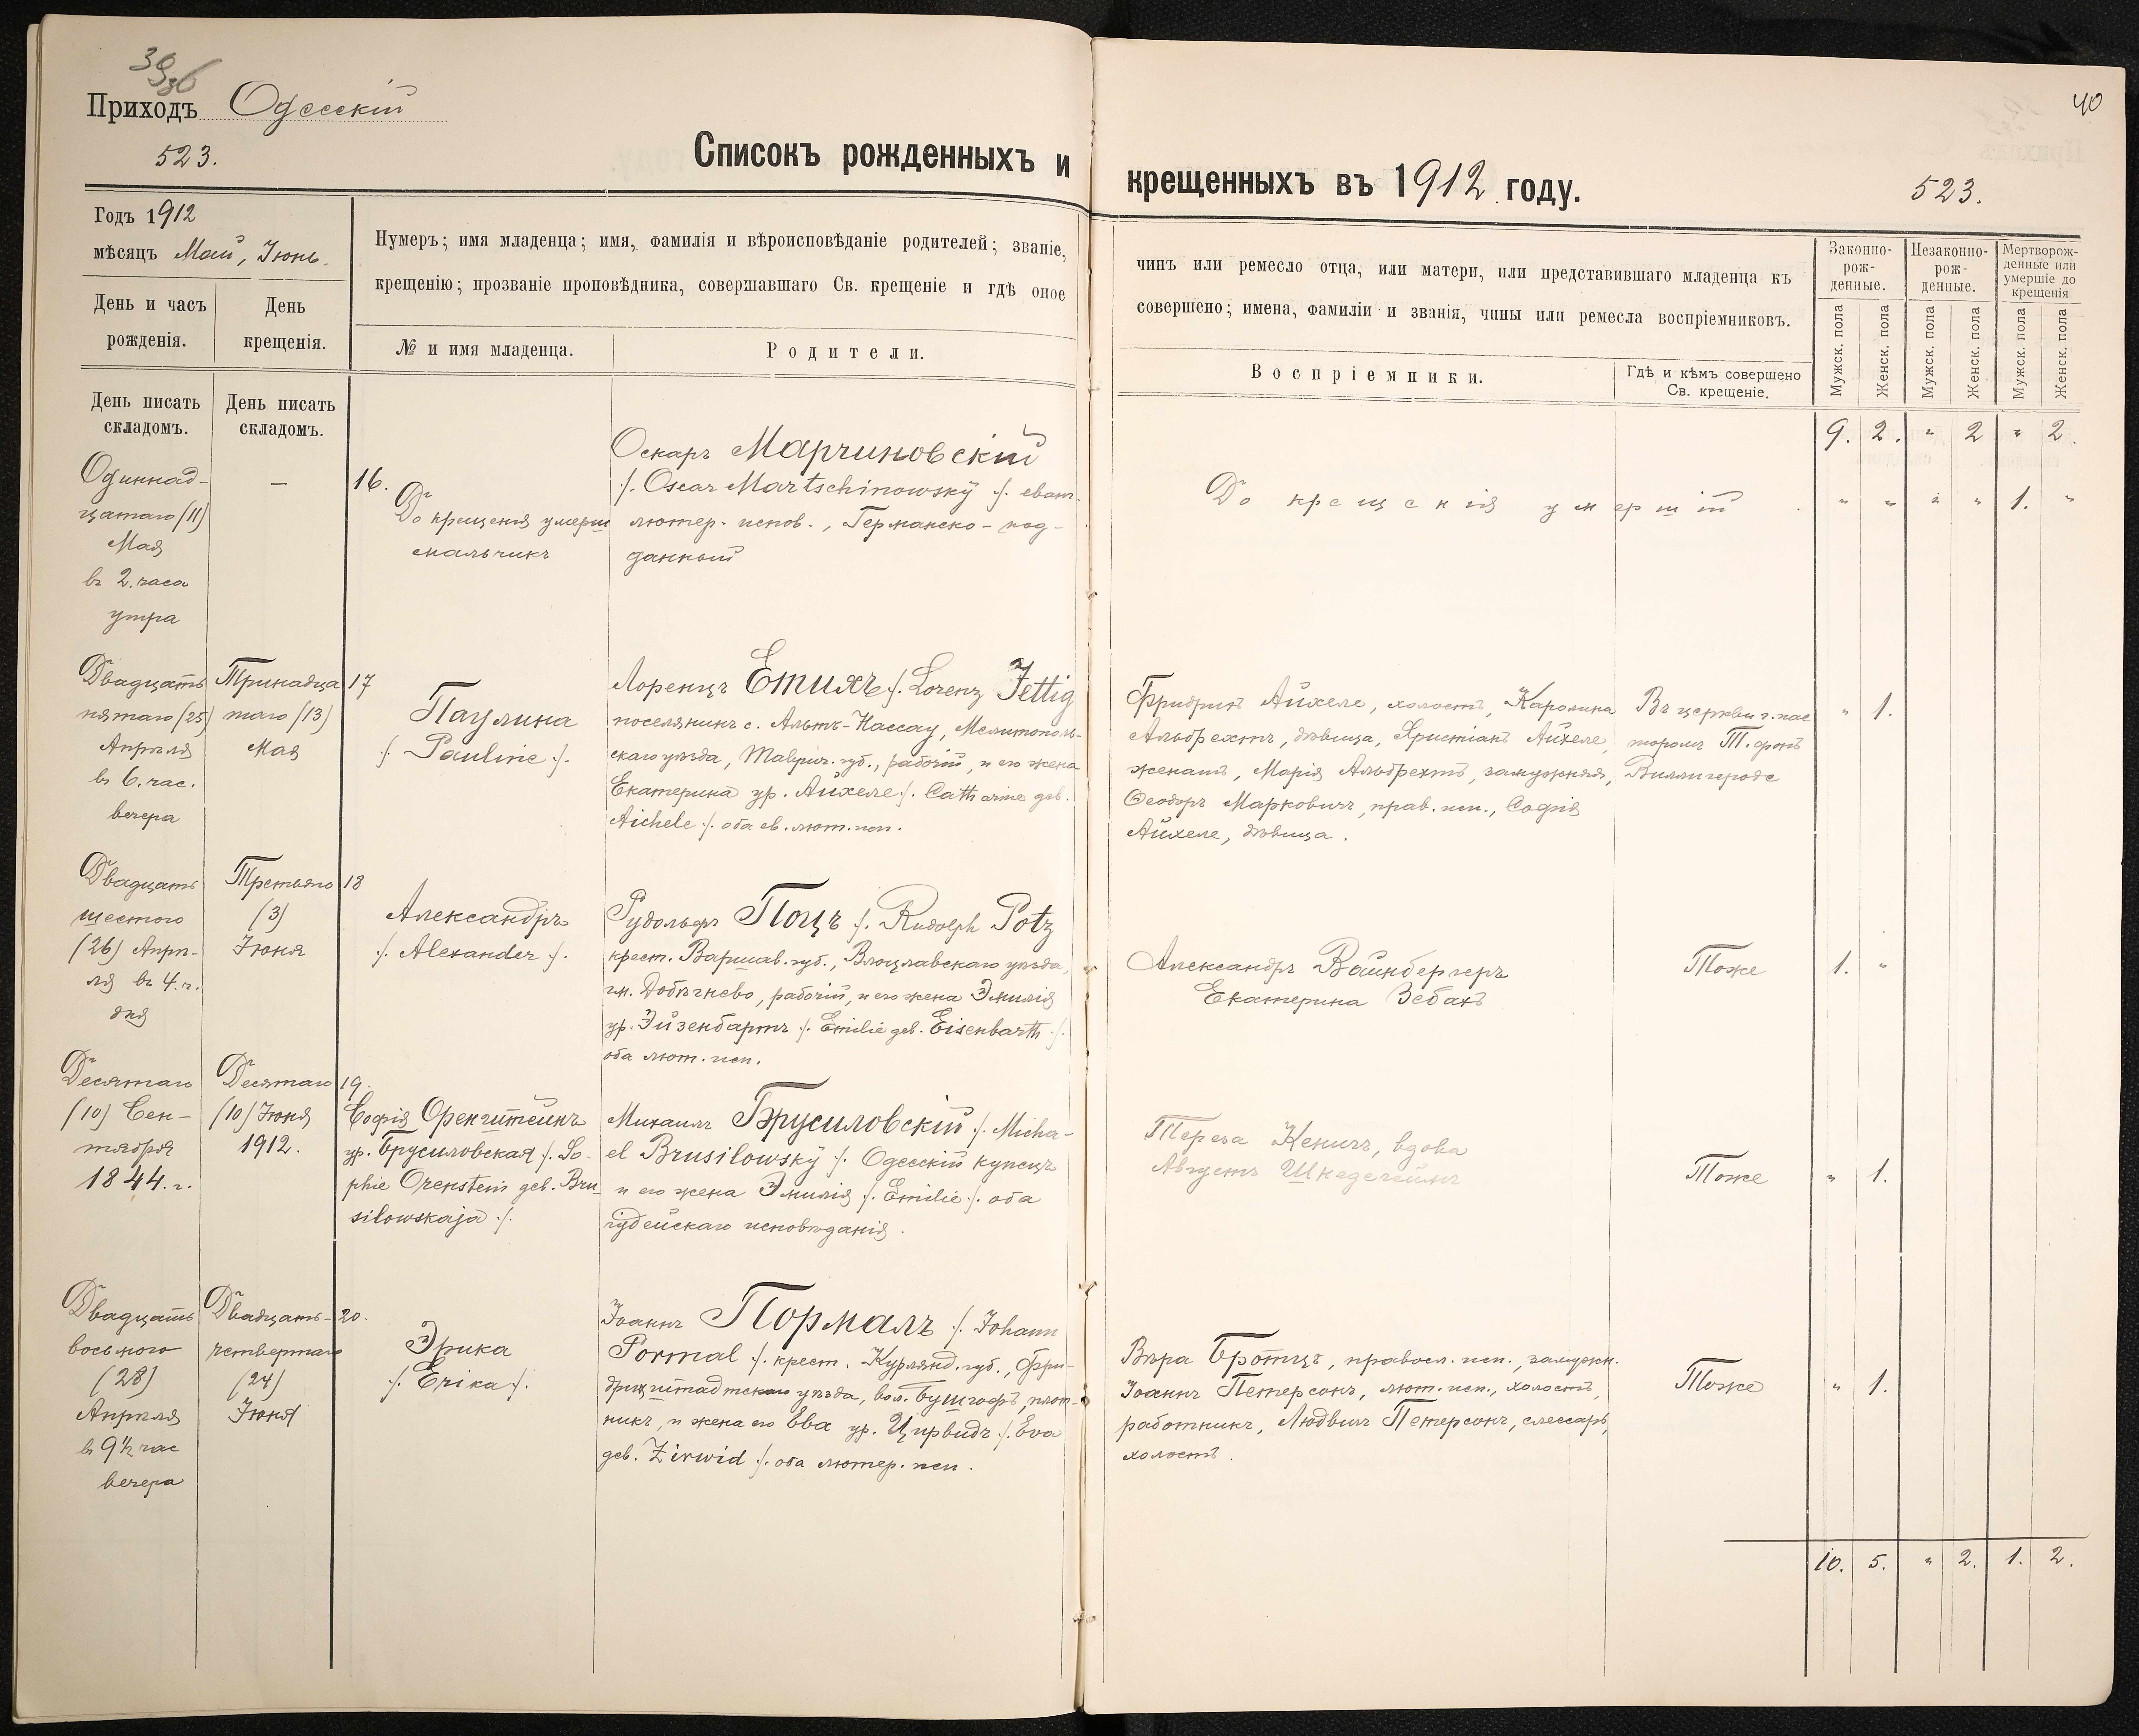 Приходъ Одесскій
523.
Списокъ рожденныхъ и крещенныхъ въ 1912 году.
523.
40
Годъ 1912
мѣсяцъ Май, Іюнь.
День и часъ рожденія.
День крещенія.
Нумеръ; имя младенца; имя, фамилія и вѣроисповѣданіе родителей; званіе,
чинъ или ремесло отца, или матери, или представившаго младенца къ
крещенію; прозваніе проповѣдника, совершавшаго Св. крещеніе и гдѣ оное
совершено; имена, фамиліи и званія, чины или ремесла воспріемниковъ.
№ и имя младенца.
Родители.
Воспріемники.
Гдѣ и кѣмъ совершено
Св. крещеніе.
Законно-
рож-
денные.
Незаконно-
рож-
денные.
Мертворож-
денные или
умершіе до
крещенія
Мужск. пола
Женск. пола
Мужск. пола
Женск. пола
Мужск. пола
Женск. пола
День писать
складомъ.
День писать
складомъ.
9. 2. " 2 " 2.
Одиннад-
цатаго (11)
Мая
въ 2. часа
утра
—
16.
До крещенія умерш
мальчикъ
Оскаръ Марчиновскій
/. Oscar Martschinowsky ./. еван.
лютер. испов., Германско-под-
данный
До крещенія умершій
" " " " 1. "
Двадцать
пятаго (25)
Апрѣля
въ 6. час.
вечера
Тринадца
таго (13)
Мая
17
Паулина
/. Pauline ./.
Лоренцъ Етихъ /. Lorenz Jettig
поселянинъ с. Альтъ-Нассау, Мелитополь-
скаго уѣзда, Таврич. губ., рабочій, и его жена
Екатерина ур. Айхеле /. Catharine geb.
Aichele ./. оба ев. лют. исп.
Фридрихъ Айхеле, холостъ, Каролина
Альбрехтъ, дѣвица, Христіанъ Айхеле,
женатъ, Марія Альбрехтъ, замужняя,
Ѳеодоръ Марковичъ, прав. исп., Софія
Айхеле, дѣвица.
Въ церкви г. пас
торомъ Т. фонъ
Виллигероде
" 1.
Двадцать
шестого
(26) Апрѣ-
ля въ 4. ч.
дня
Третьяго
(3)
Іюня
18
Александръ
/. Alexander ./.
Рудольфъ Поцъ /. Rudolph Potz
крест. Варшав. губ., Влоцлавскаго уѣзда,
гм. Добѣгнево, рабочій, и его жена Эмилія
ур. Эйзенбартъ /. Emilie geb. Eisenbarth ./.
оба лют. исп.
Александръ Вайнбергеръ
Екатерина Зебахъ
Тоже
1. "
Десятаго
(10) Сен-
тября
1844. г.
Десятаго
(10) Іюня
1912.
19.
Софія Оренштейнъ
ур. Брусиловская /. So-
phie Orenstein geb. Bru
silowskaja ./.
Михаилъ Брусиловскій /. Micha-
el Brusilowsky ./. Одесскій купецъ
и его жена Эмилія /. Emilie ./. оба
іудейскаго исповѣданія.
Тереза Кеничъ, вдова
Августъ
Тоже
" 1.
Двадцать
восьмого
(28)
Апрѣля
въ 9½ час
вечера
Двадцать-
четвертаго
(24)
Іюня
20.
Эрика
/. Erika ./.
Іоаннъ Пормалъ /. Johann
Pormal ./. крест. Курлянд. губ., Фри-
дрихштадтскаго уѣзда, вол. Бушгофъ, плот-
никъ, и жена его Ева ур. Цирвидъ /. Eva
geb. Zirwid ./. оба лютер. исп.
Вѣра Бротцъ, правосл. исп., замужн.
Іоаннъ Петерсонъ, лют. исп., холостъ,
работникъ, Людвигъ Петерсонъ, слесарь,
холостъ.
Тоже
" 1.
10. 5. " 2. 1. 2.